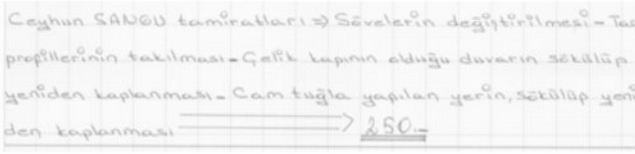 Ceyhun SANGU tamiratları => Sövelerin değiştirilmesi - Tac
profillerinin takılması - Çelik kapının olduğu duvarın sökülüp
yeniden kaplanması - Cam tuğla yapılan yerin, sökülüp yeni
den kaplanması => 250.-